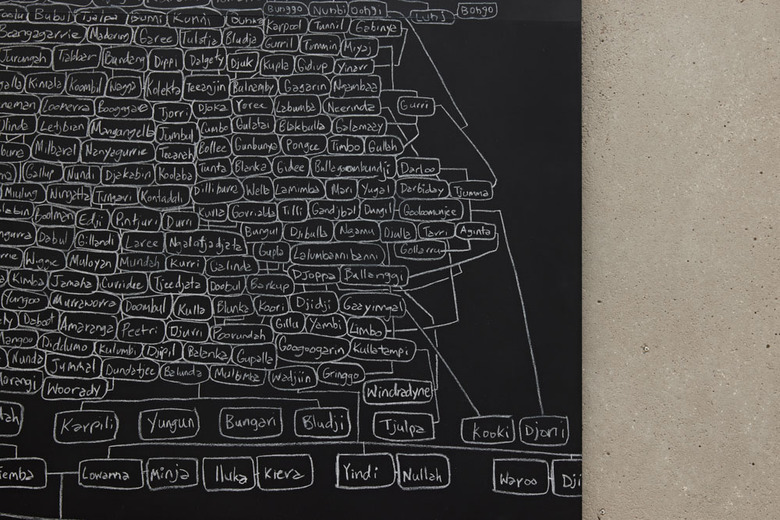 Bunggo Nunbi Oongi Lunj Bongo
Bubul Tjalpa Bumi Kunni
Karpool Tunnil Gabinya
Boangagarrie Madering Garee Tulstja Bludja
Gurril Tommin Miyaj
Jurungah Tabbar Burdang Dippi Dalgety Djuk Kupla Gidiup Yinarr
Kiniala Koombil Wagga Kolekta Teeanjin Balnamby Gagarin Ngambaa
Loomerra Booggagee Tjorri Djoka Yoree Labumba Neerinda Gurri
Letjbian Mangangella Jumbul Cumbo Gulatai Blakbulla Galamaay
Milbaral Nanyagurrie Tecanah Bollee Gunbunya Pongee Timbo Gullah
Gallup Nundi Djakabin Kolaba Tunta Blanka Gidee Ballagoombundji Dartoo
Miuling Wungatta Tungari Kontadali Dillibura Welb Lamimba Mari Yugal Darbiday Tjumma
Edji Pintjuri Durri Kurla Gorrialda Tilli Gandjbal Dangil Gooboomunjee
Dabul Gillandi Laree Ngalofjadjata Bungul Djibulla Ngamu Djulla Tarri Aginta
Winge Muloyan Mundah Kurri Galinda Gupla Lalumbannibanni Gollarru
Kimba Jamaha Curridee Tjeedjata Doobul Barkup Djoppa Ballangga
Yungoo Murrawora Doombul Kulla Blunka Koori Djidji Gaayinngal
Daboot Amaranga Peetri Djurri Poorundah Gillu Yambi Limba
Diddumo Kulumbi Djipil Balanka Gupalla Googoogarin Kullatampi
Nunda Jumhal Dundatjee Balunda Mulbimba Wadjiin Gringgo
Woorady Windradyne
Karpili Yungun Bungari Bludji Tjulpa Kooki Djorri
Lowanna Minja Iluka Kiera Yindi Nullah Waroo